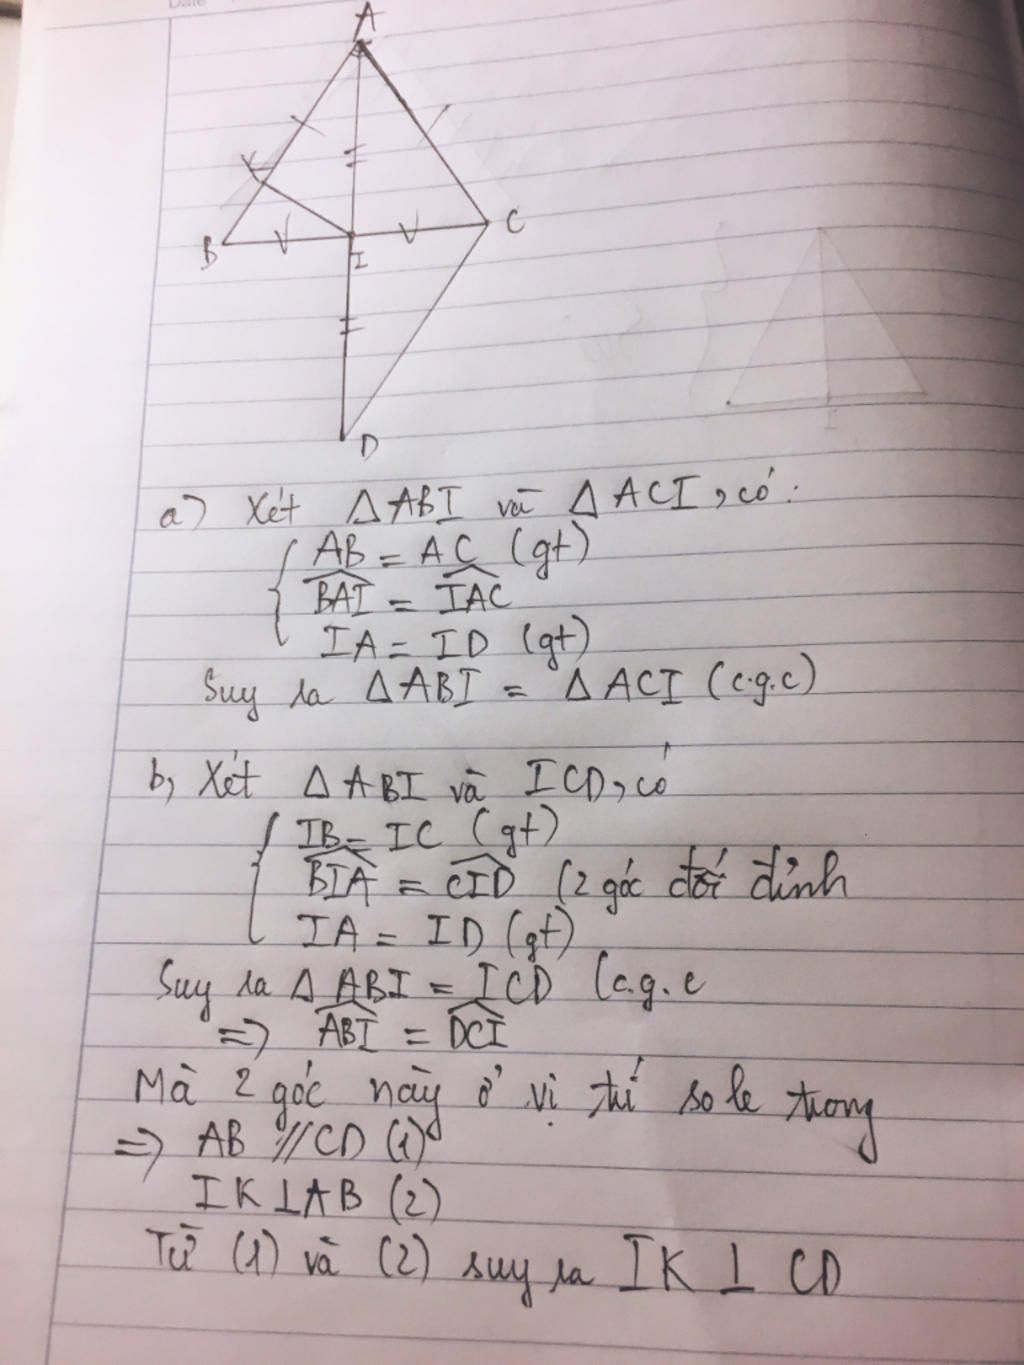 Date
A
K
B
I
C
D
a) Xét ΔABI và ΔACI, có:
AB = AC (gt)
\widehat{BAI} = \widehat{IAC}
IA = ID (gt)
Suy ra ΔABI = ΔACI (c.g.c)
b, Xét ΔABI và ICD, có
IB = IC (gt)
\widehat{BIA} = \widehat{CID} (2 góc đối đỉnh
IA = ID (gt)
Suy ra ΔABI = ICD (c.g.c
=> \widehat{ABI} = \widehat{DCI}
Mà 2 góc này ở vị trí so le trong
=> AB // CD (1)
IK ⊥ AB (2)
Từ (1) và (2) suy ra IK ⊥ CD